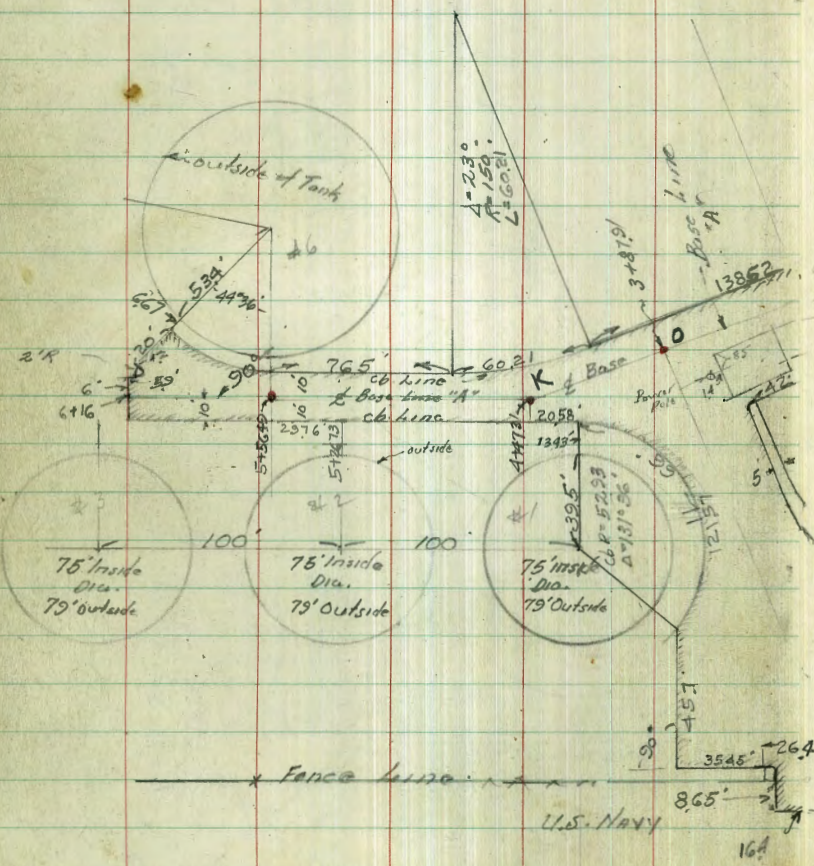 outside of Tank
#6
53.4'
44°36'
6.67
20'
2'R
59'
6'
6+16
10
90°
10
10
5+56.49
76.5'
cb Line
₵ Base Line "A"
cb Line
23.76
5+26.73
outside
Δ=23°
R=150'
L=60.21
60.21
₵ Base
3+87.91
Base Line "A"
138.52
O
K
4+47.31
20.58
13.43'
Power Pole
42'
5'
39.5'
cb R=52.93
Δ=131°36'
121.57
#3
#2
#1
100'
100'
75' Inside
Dia.
79' Outside
75' Inside
Dia.
79' Outside
75' Inside
Dia.
79' Outside
45.7'
90°
35.45'
26.4
8.65'
Fence Line
U.S. NAVY
16A